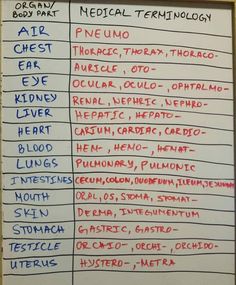 ORGAN/ BODY PART MEDICAL TERMINOLOGY
AIR PNEUMO
CHEST THORACIC, THORAX, THORACO-
EAR AURICLE, OTO-
EYE OCULAR, OCULO-, OPHTALMO-
KIDNEY RENAL, NEPHRIC, NEPHRO-
LIVER HEPATIC, HEPATO-
HEART CARIUM, CARDIAC, CARDIO-
BLOOD HEM-, HEMO-, HEMAT-
LUNGS PULMONARY, PULMONIC
INTESTINES CECUM, COLON, DUODENUM, ILEUM, JEJUNUM
MOUTH ORAL, OS, STOMA, STOMAT-
SKIN DERMA, INTEGUMENTUM
STOMACH GASTRIC, GASTRO-
TESTICLE ORCAIO-, ORCHI-, ORCHIDO-
UTERUS HYSTERO-, -METRA